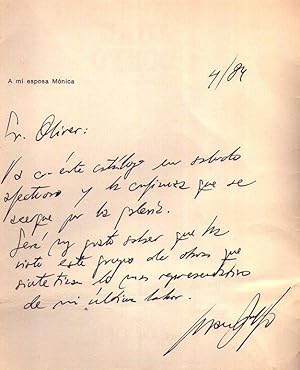 A mi esposa Mónica
4/84
Sr. Oliver:
Va con éste catálogo un saludo
afectuoso y la confianza que se
acerque por la galería.
Será muy grato saber que ha
visto este grupo de obras que
sintetizan lo mas representativo
de mi última labor.